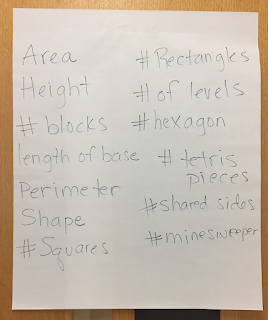 Area
Height
# blocks
length of base
Perimeter
Shape
# Squares
# Rectangles
# of levels
# hexagon
# tetris
pieces
# shared sides
# minesweeper